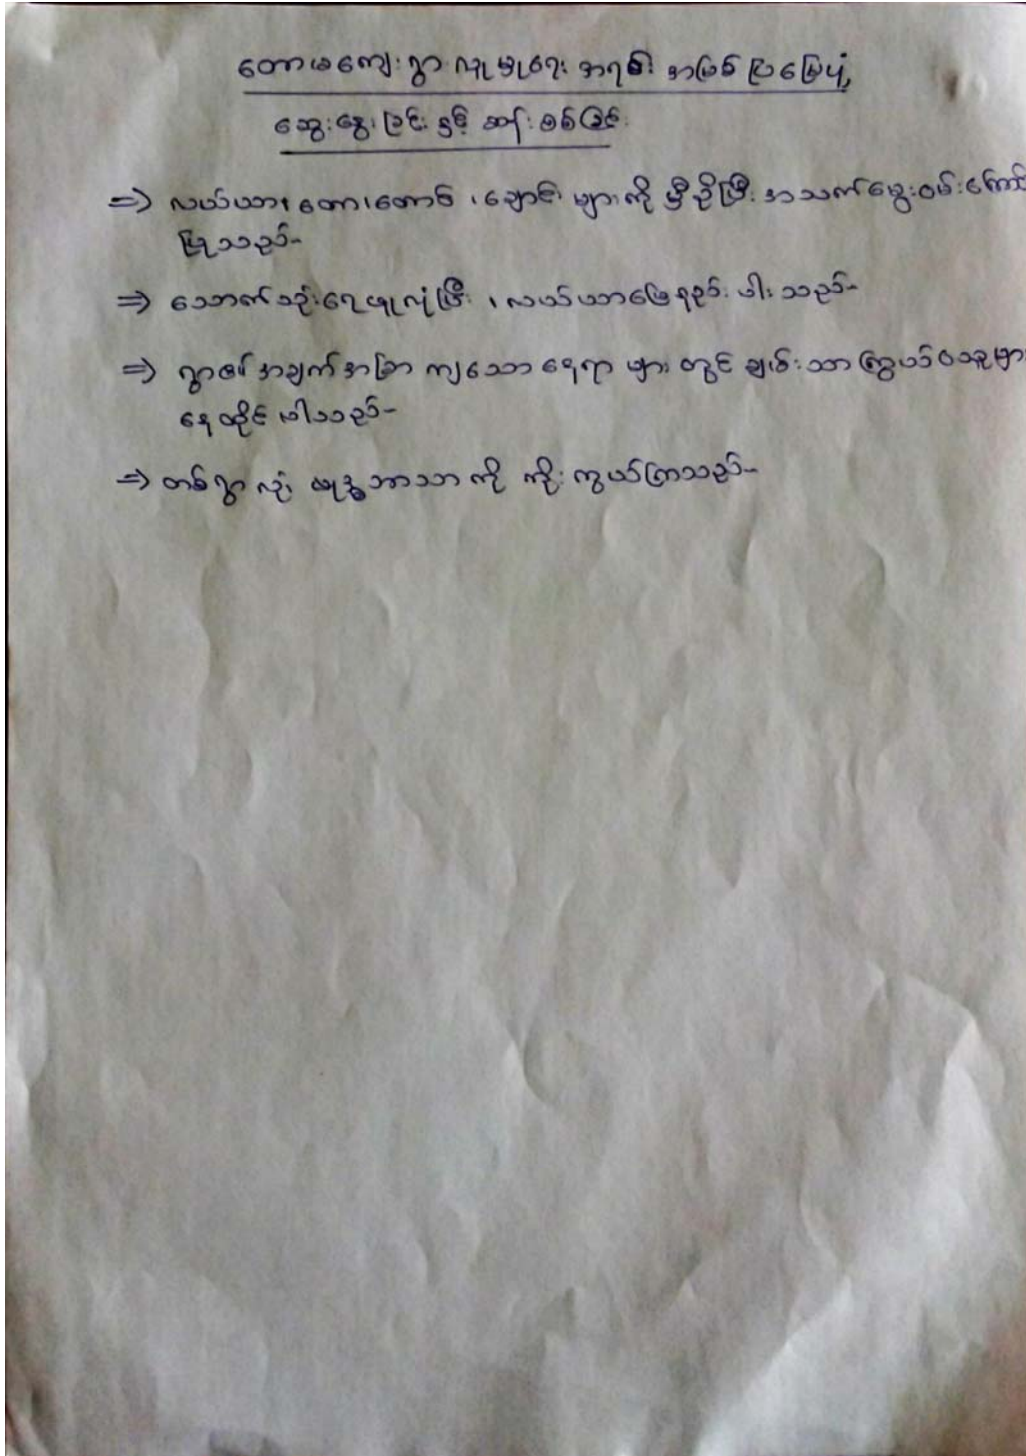 တောမကျေးရွာ လူမှုရေး အရင်း အမြစ်ပြမြေပုံ
ဆွေးနွေးခြင်း နှင့် ဆန်းစစ်ခြင်း
⇒ လယ်ယာ၊ တော၊တောင် ၊ချောင်း များကို မှီခိုပြီး အသက်မွေးဝမ်းကြောင်း
ပြုသည်-
⇒ သောက်သုံးရေဖူလုံပြီး ၊ လယ်ယာမြေ ရှားပါးသည်-
⇒ ရွာ၏ အချက်အခြာ ကျသော နေရာ များ တွင် ချမ်းသာ ကြွယ်ဝသူများ
နေထိုင် ပါသည်-
⇒ တစ်ရွာလုံး ဗုဒ္ဓဘာသာ ကို ကိုးကွယ်ကြသည်-